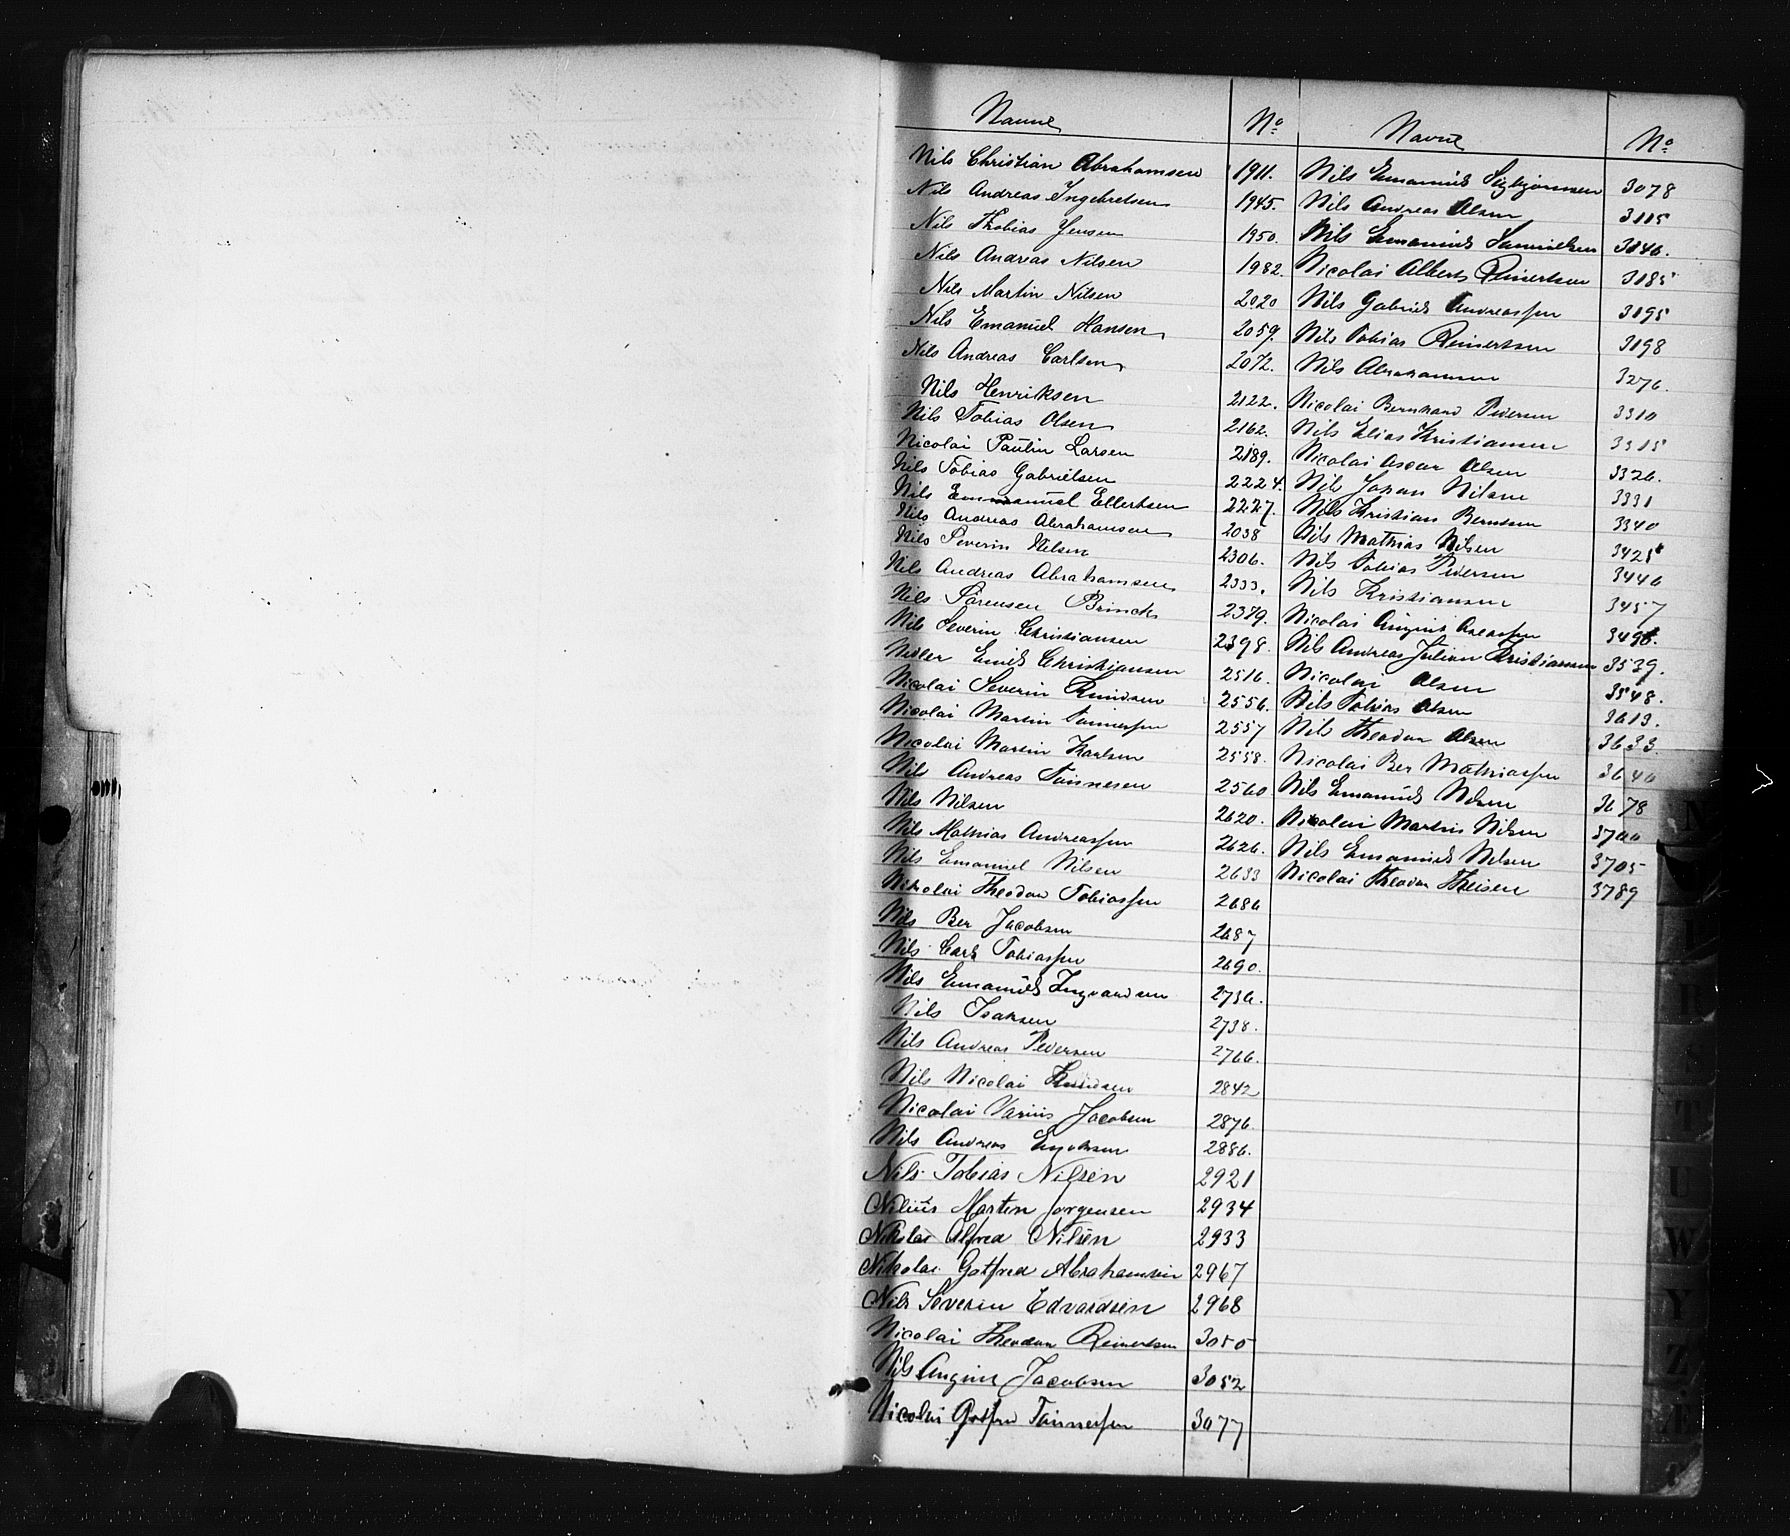 Navne No
Nils Christian Abrahamsen 1911.
Nils Andreas Ingebretsen 1945.
Nils Thobias Jensen 1950.
Nils Andreas Nilsen 1982
Nils Martin Nilsen 2020
Nils Emanuel Hansen 2059.
Nils Andreas Carlsen 2072.
Nils Henriksen 2122.
Nils Tobias Olsen 2162.
Nicolai Paulin Larsen 2189.
Nils Tobias Gabrielsen 2224.
Nils Emmanuel Ellertsen 2227.
Nils Andreas Abrahamsen 2038
Nils Severin Nilsen 2306.
Nils Andreas Abrahamsen 2333.
Nils Sørensen Brinck 2379.
Nils Severin Christiansen 2398.
Emil Christiansen 2516.
Nicolai Severin Knudsen 2556.
Nicolai Martin Tønnessen 2557
Nicolai Martin Karlsen 2558.
Nils Andreas Tønnesen 2560
Nils Nilsen 2620.
Nils Mathias Andreassen 2626.
Nils Emanuel Nilsen 2633
Nikolai Theodor Tobiassen 2686
Nils Ber Jacobsen 2687
Nils Carl Tobiassen 2690.
Nils Emanuel Ingvardsen 2736.
Nils Isaksen 2738.
Nils Andreas Pedersen 2766.
Nils Nicolai Knudsen 2842
Nicolai Jacobsen 2876.
Nils Andreas 2886.
Nils Tobias Nilsen 2921
Nilius Martin Jørgensen 2934
Nikolai Alfred Nilsen 2933
Nikolai Gotfred Abrahamsen 2967
Nils Severin Edvardsen 2968
Nicolai Theodor Reinertsen 3050
Nils August Jacobsen 3052
Nicolai Tønnessen 3077
Navne No
Nils Emanuel Sigbjørnsen 3078
Nils Andreas Olsen 3115
Nils Emanuel Samuelsen 3146.
Nicolai Albert Reinertsen 3185
Nils Gabriel Andreassen 3195
Nils Tobias Reinertsen 3198
Nils Abrahamsen 3276.
Nicolai Bernhard Pedersen 3310
Nils Elias Kristiansen 3315
Nicolai Oscar Olsen 3326.
Nils Johan Nilsen 3331
Nils Kristian Berntsen 3340
Nils Mathias Nilsen 3425
Nils Tobias Pedersen 3446
Nils Kristiansen 3457
Nicolai August
Nils Andreas Julian Kristiansen 3539.
Nicolai Olsen 3548.
Nils Tobias Olsen 3613.
Nils Theodor Olsen 3633
Nicolai Ber Mathiassen 3640
Nils Emanuel Nilsen 3678
Nicolai Martin Nilsen 3700
Nils Emanuel Nilsen 3705
Nicolai Theodor Theisen 3789
N
R
S
T
U
W
Y
Z
Æ